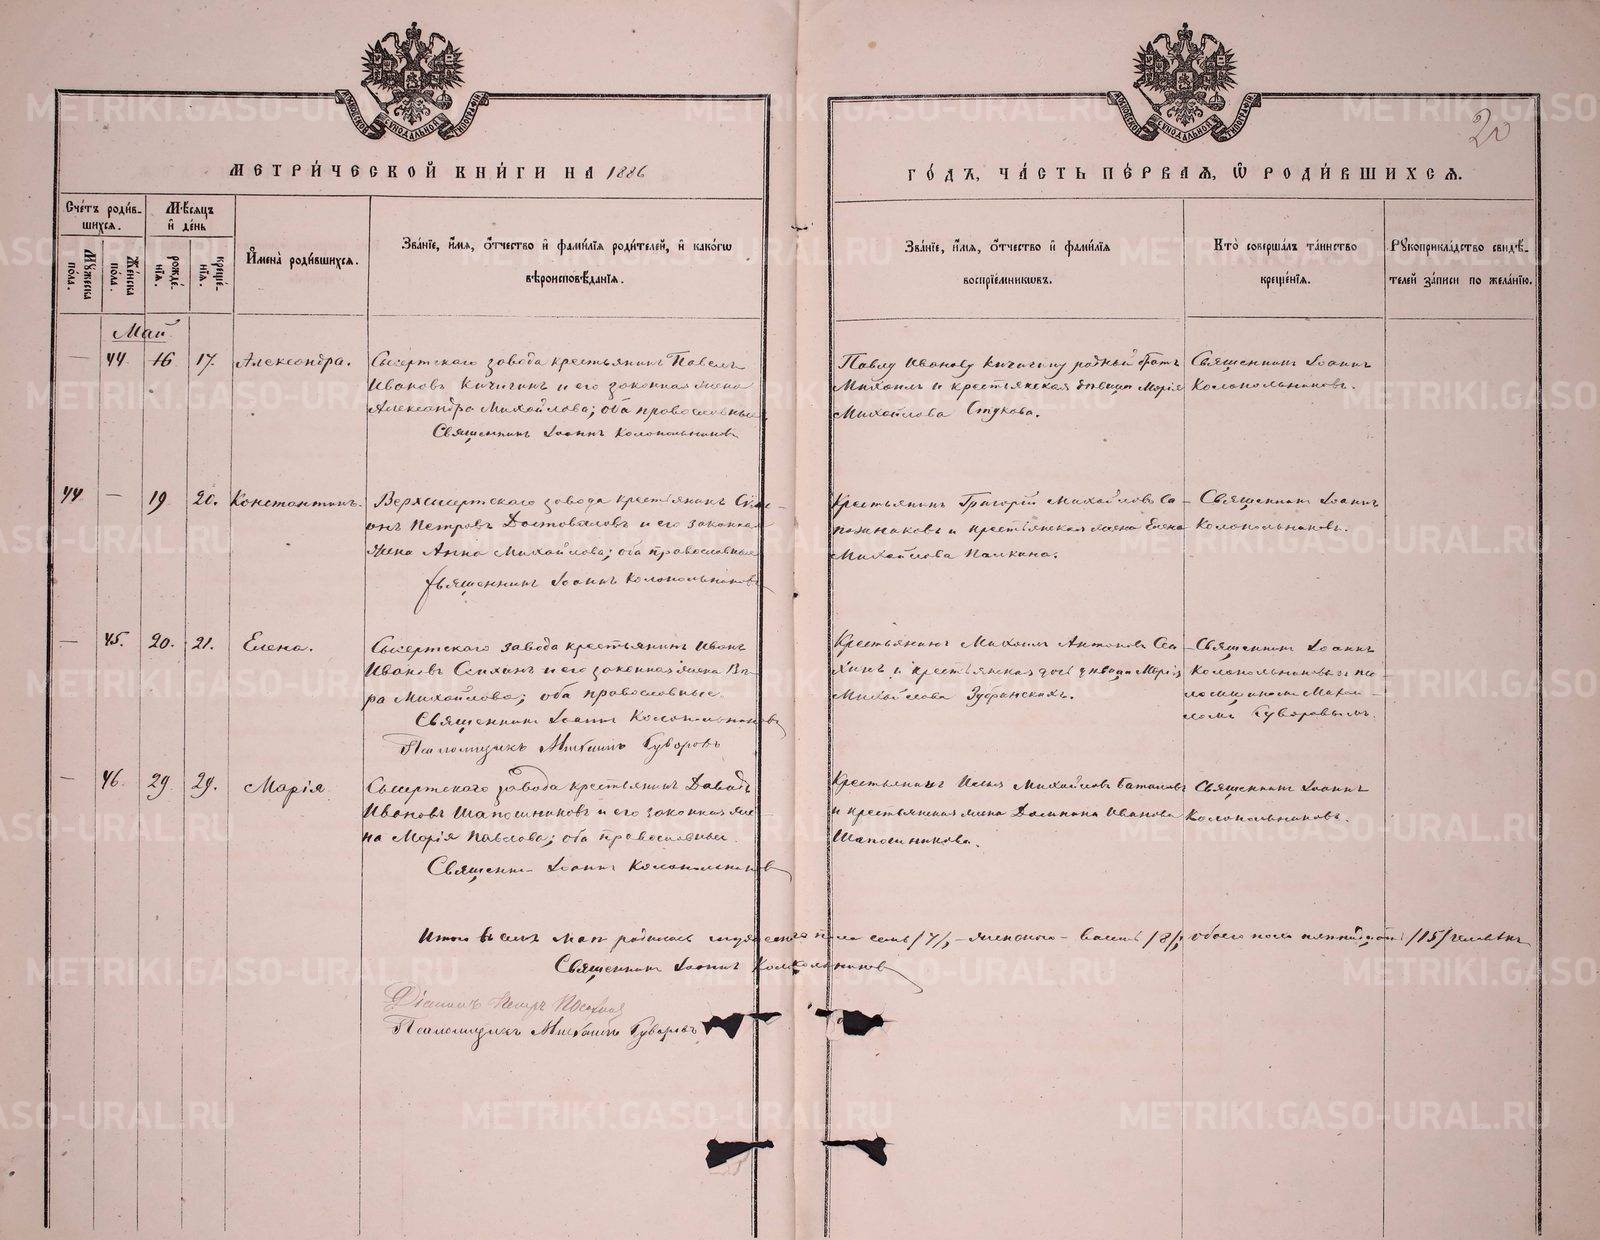 МЕТРИ́ЧЕСКОЙ КНИ́ГИ НА 1886
ГО́ДЪ, ЧА́СТЬ ПЕ́РВАѦ, Ѿ РОДИ́ВШИХСѦ.
20
Сче́тъ роди́в-
шихсѧ.
Мѣ́сѧцъ
и҆ де́нь
Мꙋ́жеска
по́ла.
Же́нска
по́ла.
рожде́-
нїѧ.
креще́-
нїѧ.
И҆мена̀ роди́вшихсѧ.
Зва́нїе, и҆́мѧ, ѻ҆́тчество и҆ фами́лїѧ роди́телей, и҆ како́гѡ
вѣроисповѣ́данїѧ.
Зва́нїе, и҆́мѧ, ѻ҆́тчество и҆ фами́лїѧ
воспрїе́мникѡвъ.
Кто̀ соверша́лъ та́инство
креще́нїѧ.
Рꙋкоприкла́дство свидѣ́-
телей за́писи по жела́нїю.
Май
— 44. 16 17. Александра.
Сысертскаго завода крестьянинъ Павелъ
Ивановъ Кичигинъ и его законная жена
Александра Михайлова; оба православные
Священникъ Іоаннъ Колокольниковъ
Павлу Иванову Кичигину родный братъ
Михаилъ и крестьянская девица Марія
Михайлова Стукова.
Священникъ Іоаннъ
Колокольниковъ.
44 — 19 20. Константинъ.
Верхсысертскаго завода крестьянинъ Симе-
онъ Петровъ Достоваловъ и его законная
жена Анна Михайлова; оба православные
Священникъ Іоаннъ Колокольниковъ
Крестьянинъ Григорій Михайловъ Са-
пожниковъ и крестьянская жена Елена
Михайлова Палкина.
Священникъ Іоаннъ
Колокольниковъ.
— 45. 20. 21. Елена.
Сысертскаго завода крестьянинъ Иванъ
Ивановъ и его законная жена Вѣ-
ра Михайлова; оба православные.
Священникъ Іоаннъ Колокольниковъ
Псаломщикъ Михаилъ Суворовъ
Крестьянинъ Михаилъ Антоновъ
и крестьянская дочь девица Марія
Михайлова Зубринскихъ.
Священникъ Іоаннъ
Колокольниковъ съ пса-
ломщикомъ Михаи-
ломъ Суворовымъ.
— 46. 29. 29. Марія
Сысертскаго завода крестьянинъ Давидъ
Ивановъ Шапошниковъ и его законная же-
на Марія Павлова; оба православные.
Священникъ Іоаннъ Колокольниковъ
Крестьянинъ Илья Михайловъ Батановъ
и крестьянская жена Домника Иванова
Шапошникова.
Священникъ Іоаннъ
Колокольниковъ.
Итого въ маѣ родилось мужескаго пола семь /7/, женскаго восемь /8/, обоего пола пятнадцать /15/ человѣкъ
Священникъ Іоаннъ Колокольниковъ
Діаконъ Петръ
Псаломщикъ Михаилъ Суворовъ